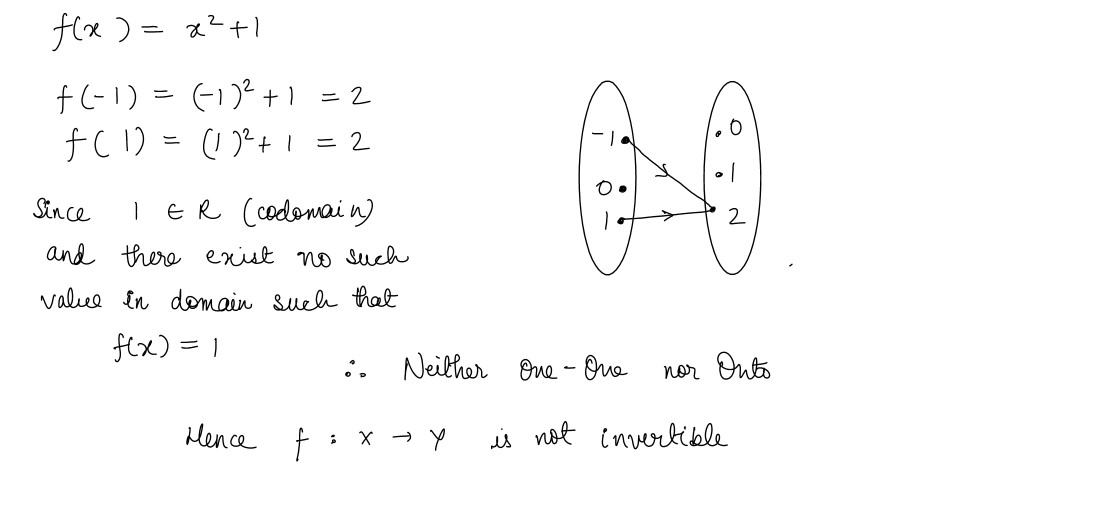 f(x) = x²+1
f(-1) = (-1)²+1 = 2
f(1) = (1)²+1 = 2
-1
0
1
0
1
2
Since 1 ∈ R (codomain)
and there exist no such
value in domain such that
f(x) = 1
∴ Neither One-One nor Onto
Hence f : X → Y is not invertible